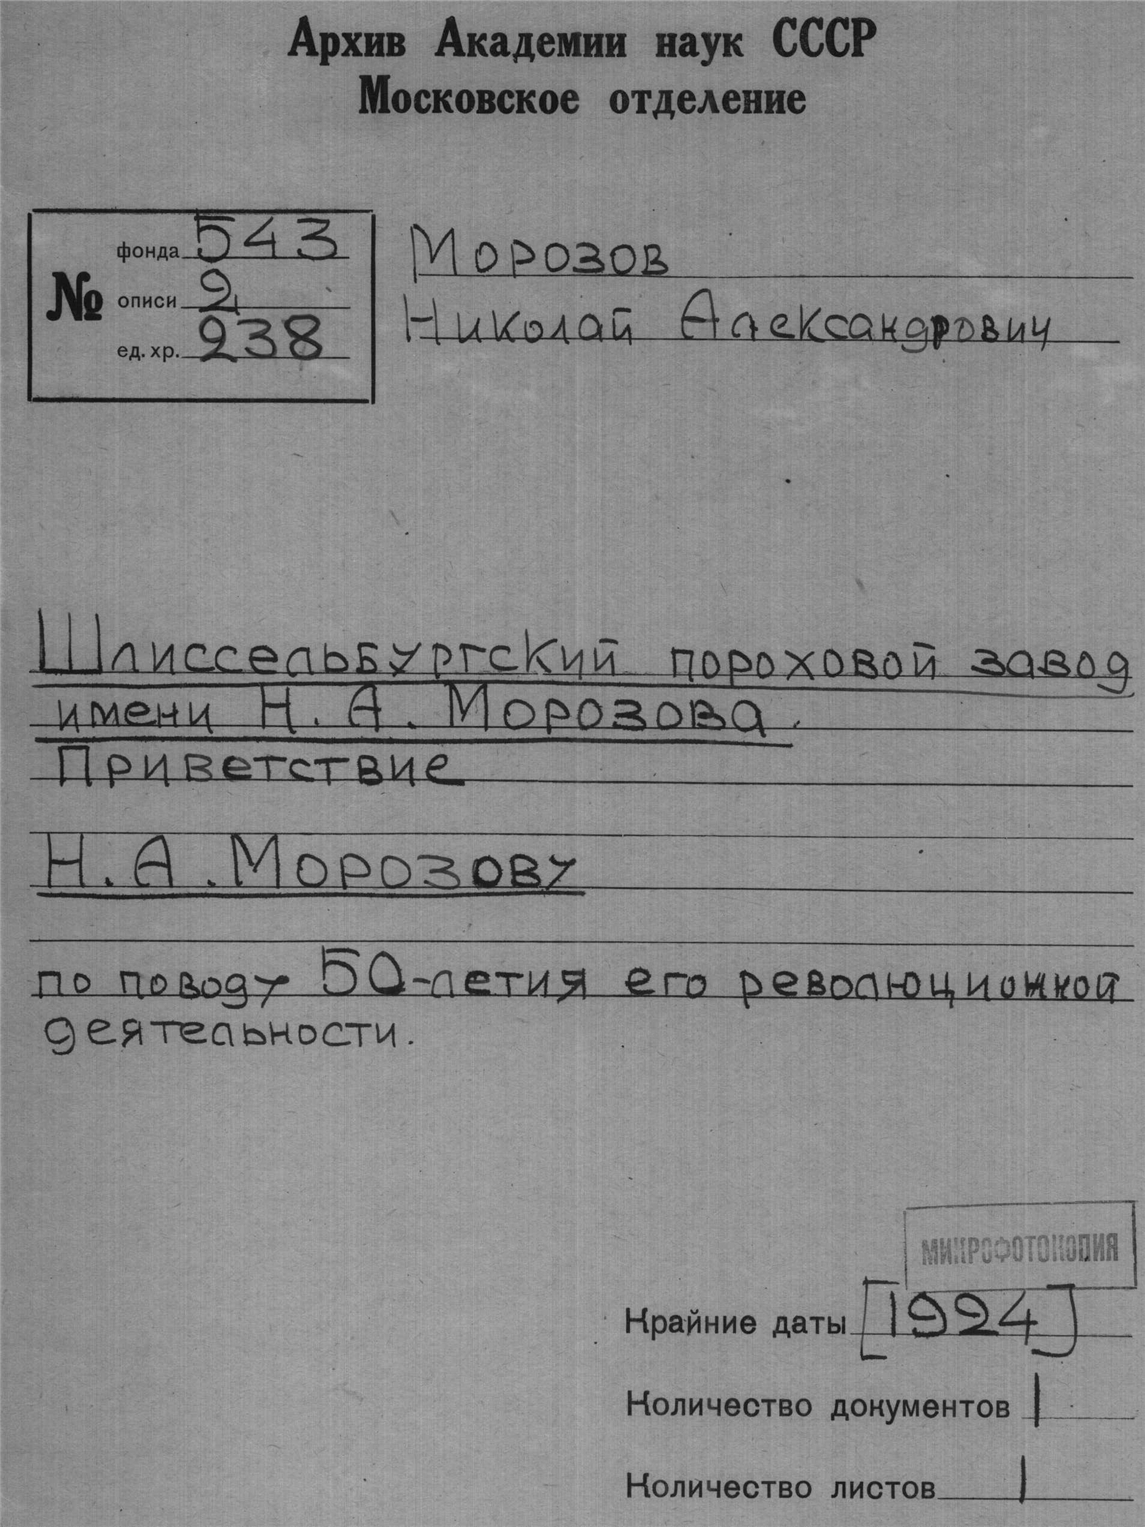 Архив Академии наук СССР
Московское отделение
№
фонда 543
описи 2
ед. хр. 238
Морозов
Николай Александрович
Шлиссельбургский пороховой завод
имени Н. А. Морозова.
Приветствие
Н. А. Морозову
по поводу 50-летия его революционной
деятельности.
МИКРОФОТОКОПИЯ
Крайние даты [1924]
Количество документов 1
Количество листов 1